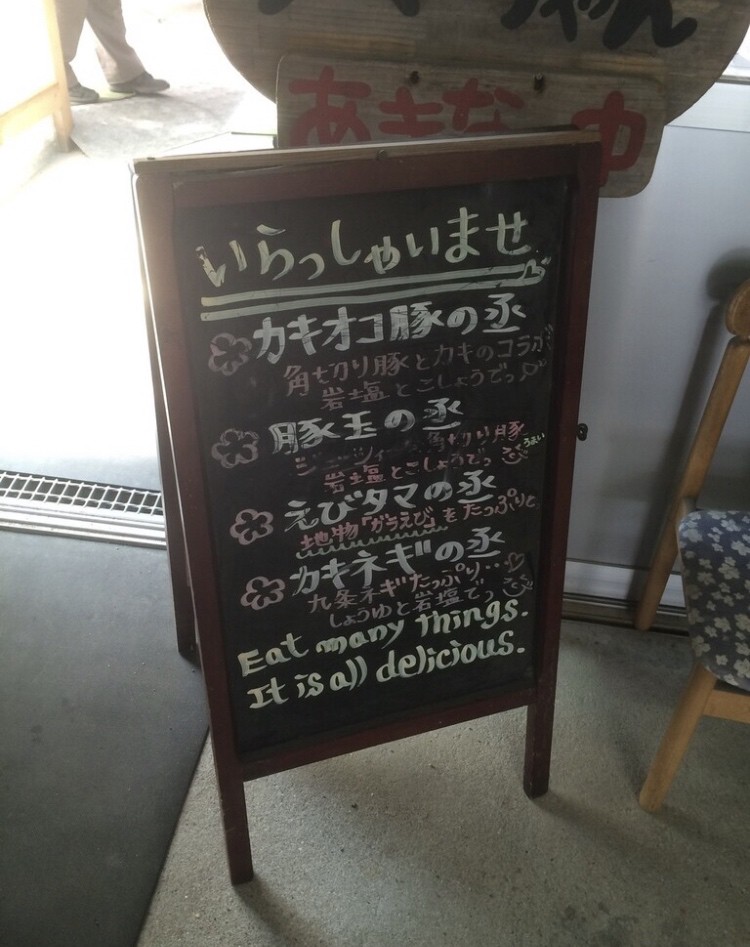 あきな 中
いらっしゃいませ
カキオコ豚の丞
角切り豚とカキのコラボ
岩塩とこしょうでっ
豚玉の丞
ジューシィー 角切り豚
岩塩とこしょうでっ
うまい
えびタマの丞
地物「ガラえび」をたっぷりと
カキネギの丞
九条ネギたっぷり…
しょうゆと岩塩でっ
Eat many things.
It is all delicious.